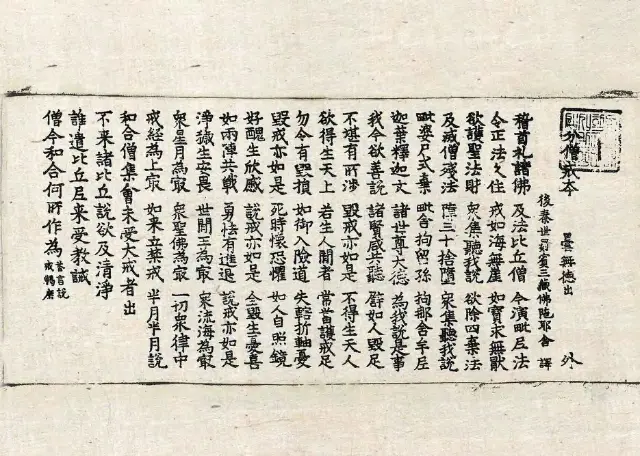 四分僧戒本 曇無德出
後秦世罽賓三藏佛陀耶舍 譯 外
稽首礼諸佛 及法比丘僧 今演毗尼法
令正法久住 戒如海無崖 如寶求無猒
欲護聖法財 衆集聽我說 欲除四棄法
及滅僧殘法 障三十捨墮 衆集聽我說
毗婆尸式棄 毗舍拘留孫 拘那舍牟尼
迦葉釋迦文 諸世尊大德 為我說是事
我今欲善說 諸賢咸共聽 譬如人毀足
不堪有所涉 毀戒亦如是 不得生天人
欲得生天上 若生人間者 常當護戒足
勿令有毀損 如御入險道 失轄折軸憂
毀戒亦如是 死時懷恐懼 如人自照鏡
好醜生欣慼 說戒亦如是 全毀生憂喜
如兩陣共戰 勇怯有進退 說戒亦如是
淨穢生安畏 世間王為㝡 衆流海為㝡
衆星月為㝡 衆聖佛為㝡 一切衆律中
戒經為上㝡 如來立禁戒 半月半月說
和合僧集會未受大戒者出
不來諸比丘說欲及清淨
誰遣比丘尼來受教誡
僧今和合何所作為 答言說戒羯磨